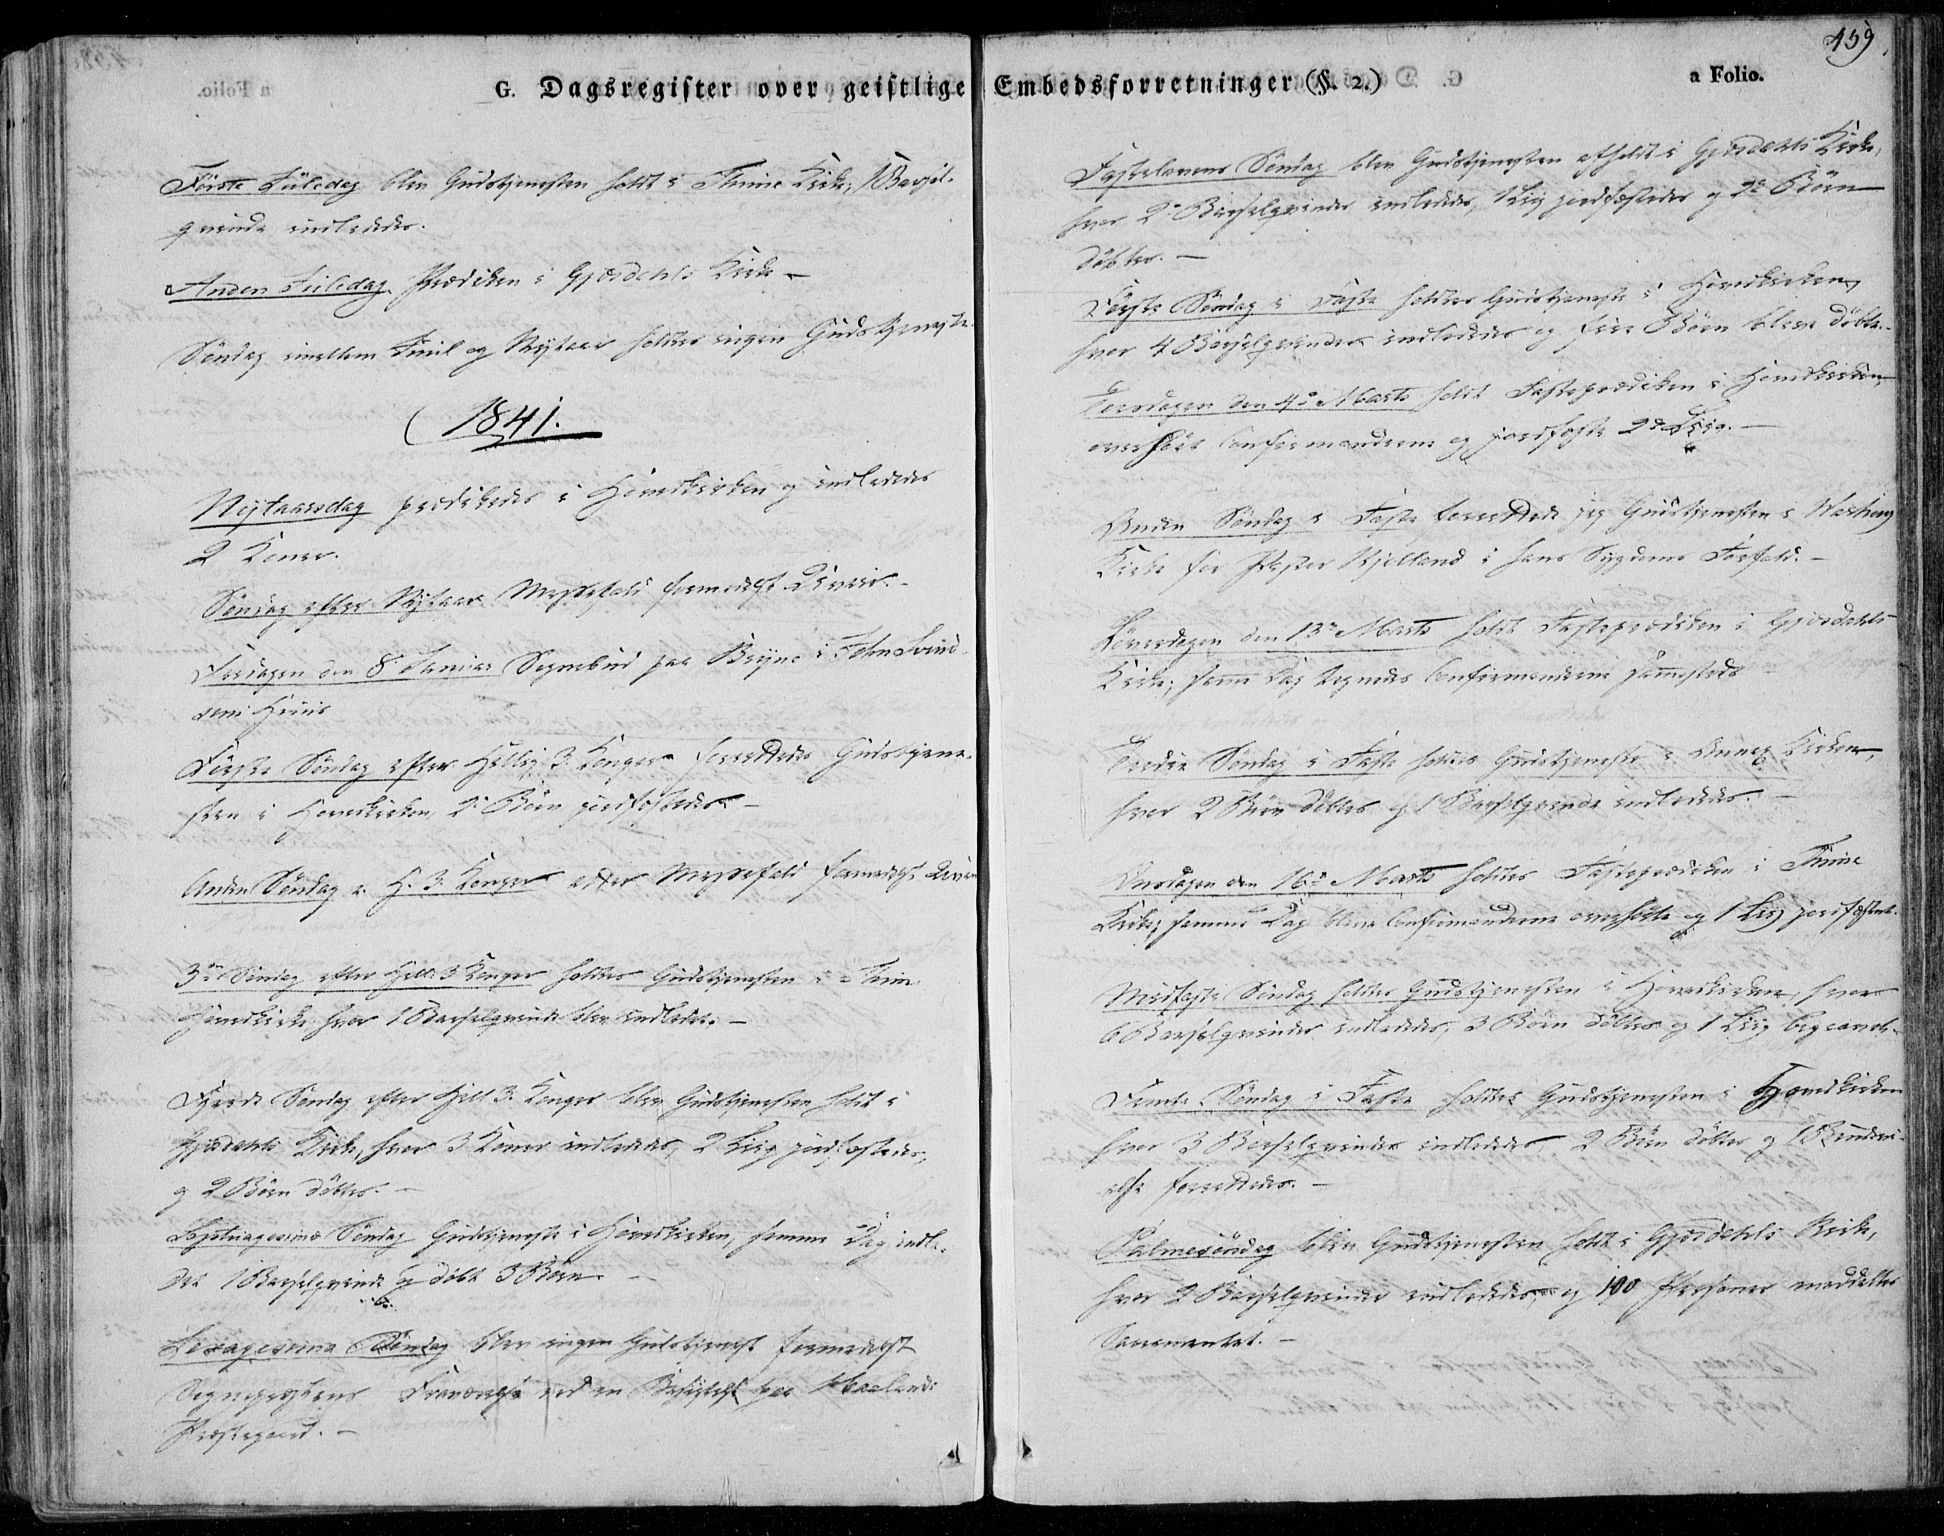 G. Dagsregister over geistlige Embedsforretninger (§. 2.)
Første Juledag blev Gudstjenesten holdt i Thime Kirke; 1 Barsel-
qvinde indlededes.
Anden Juledag Prædiken i Gjesdahls Kirke –
Søndag imellem Juul og Nytaar holdtes ingen Gudstjeneste.
1841.
Nytaarsdag prædikedes i Hovedkirken og indlededes
2 Koner.
Søndag efter Nytaar Messefald formedelst Uveir. –
Fredagen den 8de Januar Sognebud paa Bryne i
Huus
Første Søndag efter Hellig 3 Konger forrettedes Gudstjene-
sten i Hovedkirken, 2de Børn jordfæstedes –
Anden Søndag e. H. 3 Konger atter Messefald formedelst Uveir
3de Søndag efter Hell. 3 Konger holdtes Gudstjenesten i Thime
Hovedkirke hvor 1 Barselqvinde blev indledet. –
Fjerde Søndag efter Hell 3 Konger blev Gudstjenesten holdt i
Gjesdahls Kirke, hvor 3 Koner indlededes, 2 Liig jordfæstedes,
og 2 Børn døbtes. –
Septuagesima Søndag Gudstjeneste i Hovedkirken, samme Dag indle-
det 1 Barselqvinde og døbt 3 Børn. –
Sexagesima Søndag blev ingen Gudstjenest formedelst
Sognepræstens Fraværelse ved en paa
Præstegaard. –
459
a Folio.
Fastelavens Søndag blev Gudstjenesten afholdt i Gjesdahls Kirke,
hvor 2de Barselqvinder indlededes, 1 Liig jordfæstedes og 2de Børn
døbtes. –
Første Søndag i Faste holdtes Gudstjeneste i Hovedkirken,
hvor 4 Barselqvinder indlededes og fire Børn bleve døbte. –
Torsdagen den 4de Marts holdt Fasteprædiken i Hovedkirken,
overhørt Confirmanderne og jordfæste 2de Liig. –
Anden Søndag i Faste forrettede jeg Gudstjenesten i
Kirke for Pastor Kjelland i hans Sygdoms Forfald. –
Løverdagen den 13de Marts holdt Fasteprædiken i Gjesdahls
Kirke, samme Dag Confirmanderne sammesteds
Tredie Søndag i Faste holdtes Gudstjeneste i Annex Kirken,
hvor 2 Børn døbtes og 1 Barselqvinde indlededes. –
Onsdagen den 16de Marts holdtes Fasteprædiken i Thime
Kirke, samme Dag bleve Confirmanderne overhørte og 1 Liig jordfæstet.
Midfaste Søndag holdtes Gudstjenesten i Hovedkirken, hvor
6 Barselqvinder indlededes, 3 Børn døbtes og 1 Liig begravet. –
Femte Søndag i Faste holdtes Gudstjenesten i Hovedkirken
hvor 3 Barselqvinder indlededes, 2 Børn døbtes og 1
forrettedes. –
Palmesøndag blev Gudstjenesten holdt i Gjesdahls Kirke,
hvor 2 Barselqvinder indlededes, og 100 Personer meddeltes
Sacramentet. –